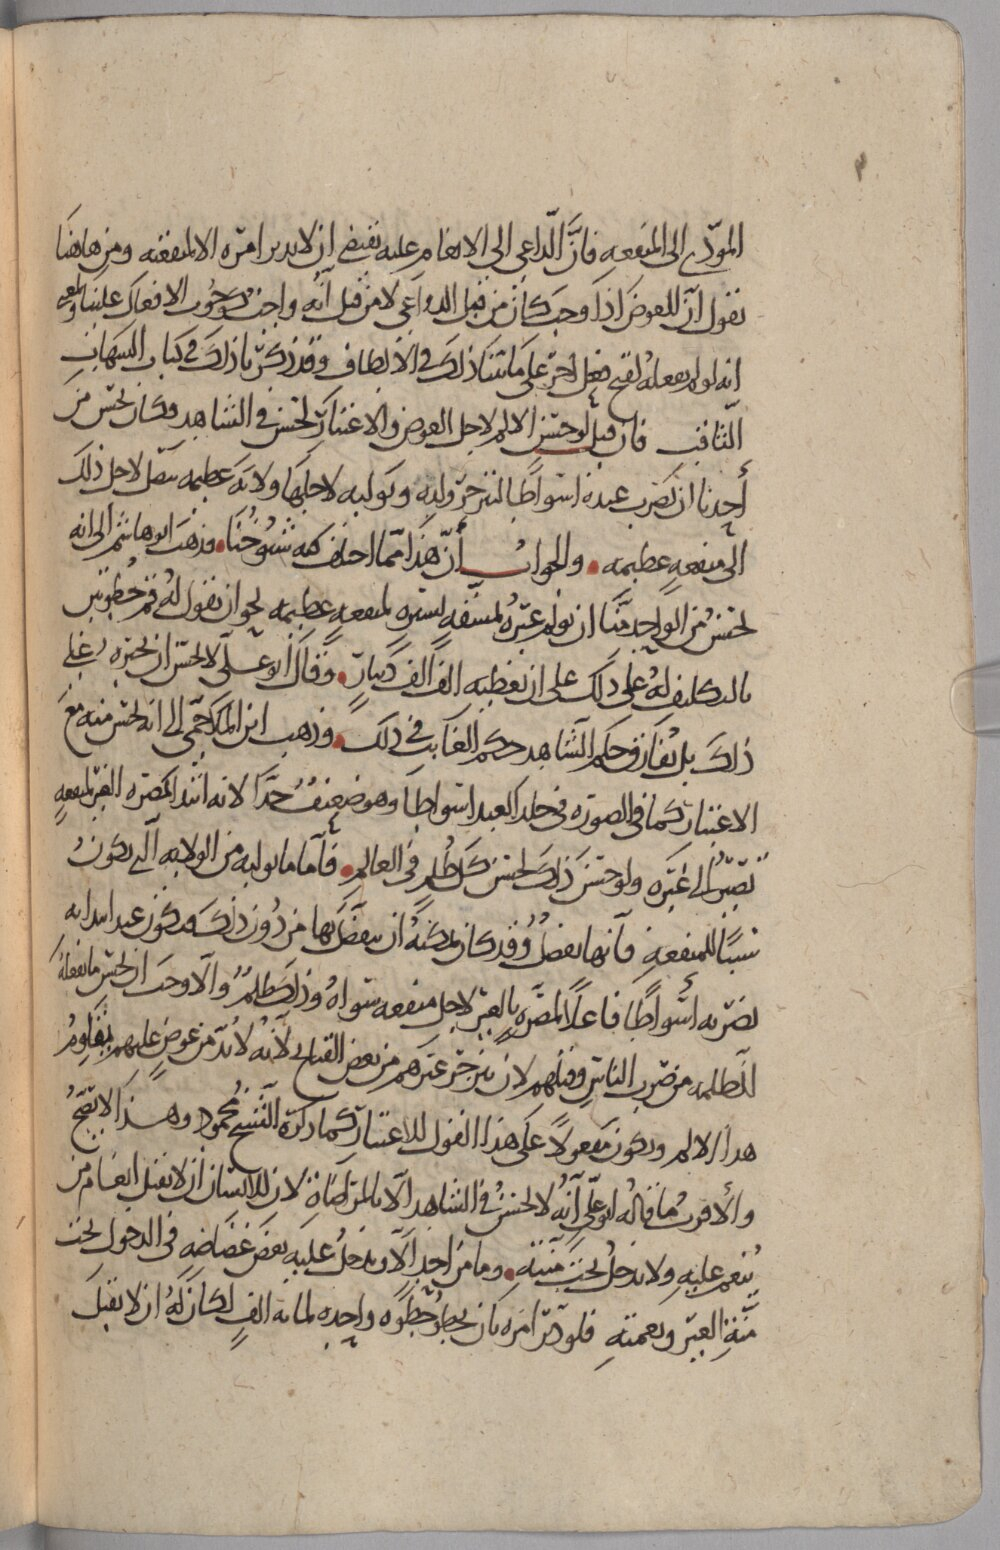 المودّي الى المنفعه فانَّ الدّاعي الى الانعام عليه يقتضي ان لا يدبر امره الا لمنفعته ومن هاهنا
نقول انّ العوض اذا وجب كان من قبل الدواعي لا من قبل انّه واجبٌ كوجُوب الافعال علينا
انه لو لم يفعله لقبح فعل اخر على ما بيّنا ذلك في الالطاف وقد ذكرنا ذلك في كتاب الشهاب
الثاقب فان قيل لو حسن الالم لاجل العوض والاعتبار لحسن في الشاهد فكان يحسن من
أحدنا ان يضرب عبده اسواطًا لينزجر ولده ويوليه لاجلها ولايةً عظيمه يتصل لاجل ذلك
الى منفعهٍ عظيمه والجوابُ أنّ هذا ممّا اختلف فيه شيُوخُنَا فذهب ابو هاشم الى انه
يحسُن من الواحد منّا ان يولم غيرهُ لمشقّه يسيره لمنفعهٍ عظيمه نحو ان نقول لهُ قم خُطوتين
بالتكليف لهُ على ذلك على ان نعطيه الفَ الفَ دينارٍ وقال ابو علي لا يحسن ان يجبره على
ذلك بل يفارق حكم الشاهد حكم الغايب في ذلك وذهب ابن الملاحمي الى انه يحسن منه مع
الاعتبار كما في الصوره في جلد العبد اسواطًا وهو ضعيفٌ جدًّا لانه ابتدا المضره الغير لمنفعهٍ
تصيرُ الى غيره ولو حسن ذلك لحسن كل ظُلمٍ في العالم فامّا ما يوليه من الولايه التي يكونُ
سببًا للمنفعه فانها تفضلٌ وقد كان يمكنهُ ان يتفضّل بها من دُون ذلك فيكون عند ابتدايه
بضربه أسواطًا فاعلًا لمضرّهٍ بالغير لاجل منفعه سواهُ وذلك ظلمٌ والّا وجب ان يحسن ما يفعلهُ
الظلمه من ضرب الناس وقتلهم لان ينزجر غيرهم من بعض القبايح لانه لا بُدّ من عوضٍ عليهم يُقاومُ
هذا الالم ويكون مفعولًا على هذا القول للاعتبار كما ذكره الشيخ محمود وهذا لا يصحُّ
والأقرب ما قاله ابو علي انّه لا يحسنُ في الشاهد الّا بالمراضاة لان للانسان أن لا يقبل انعام من
يُنعم عليه ولا يدخلُ تحت منّته وما من احدٍ الّا ويدخلُ عليه بعض غضاضهٍ في الدخول تحت
منّةِ الغير ونعمتهِ فلو خيّر امره بان يخطو خطوه واحده لمايه الفٍ لكان لهُ ان لا يقبل